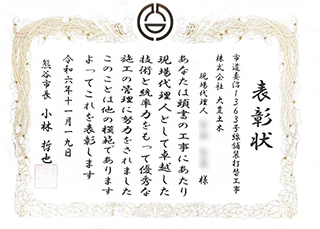 表彰状
市道妻沼1363号線舗装打替工事
株式会社 大豊土木
現場代理人 様
あなたは頭書の工事にあたり
現場代理人として卓越した
技術と統率力をもって優秀な
施工の管理に努力をされました
このことは他の模範であります
よってこれを表彰します
令和六年十一月一九日
熊谷市長 小林 哲也